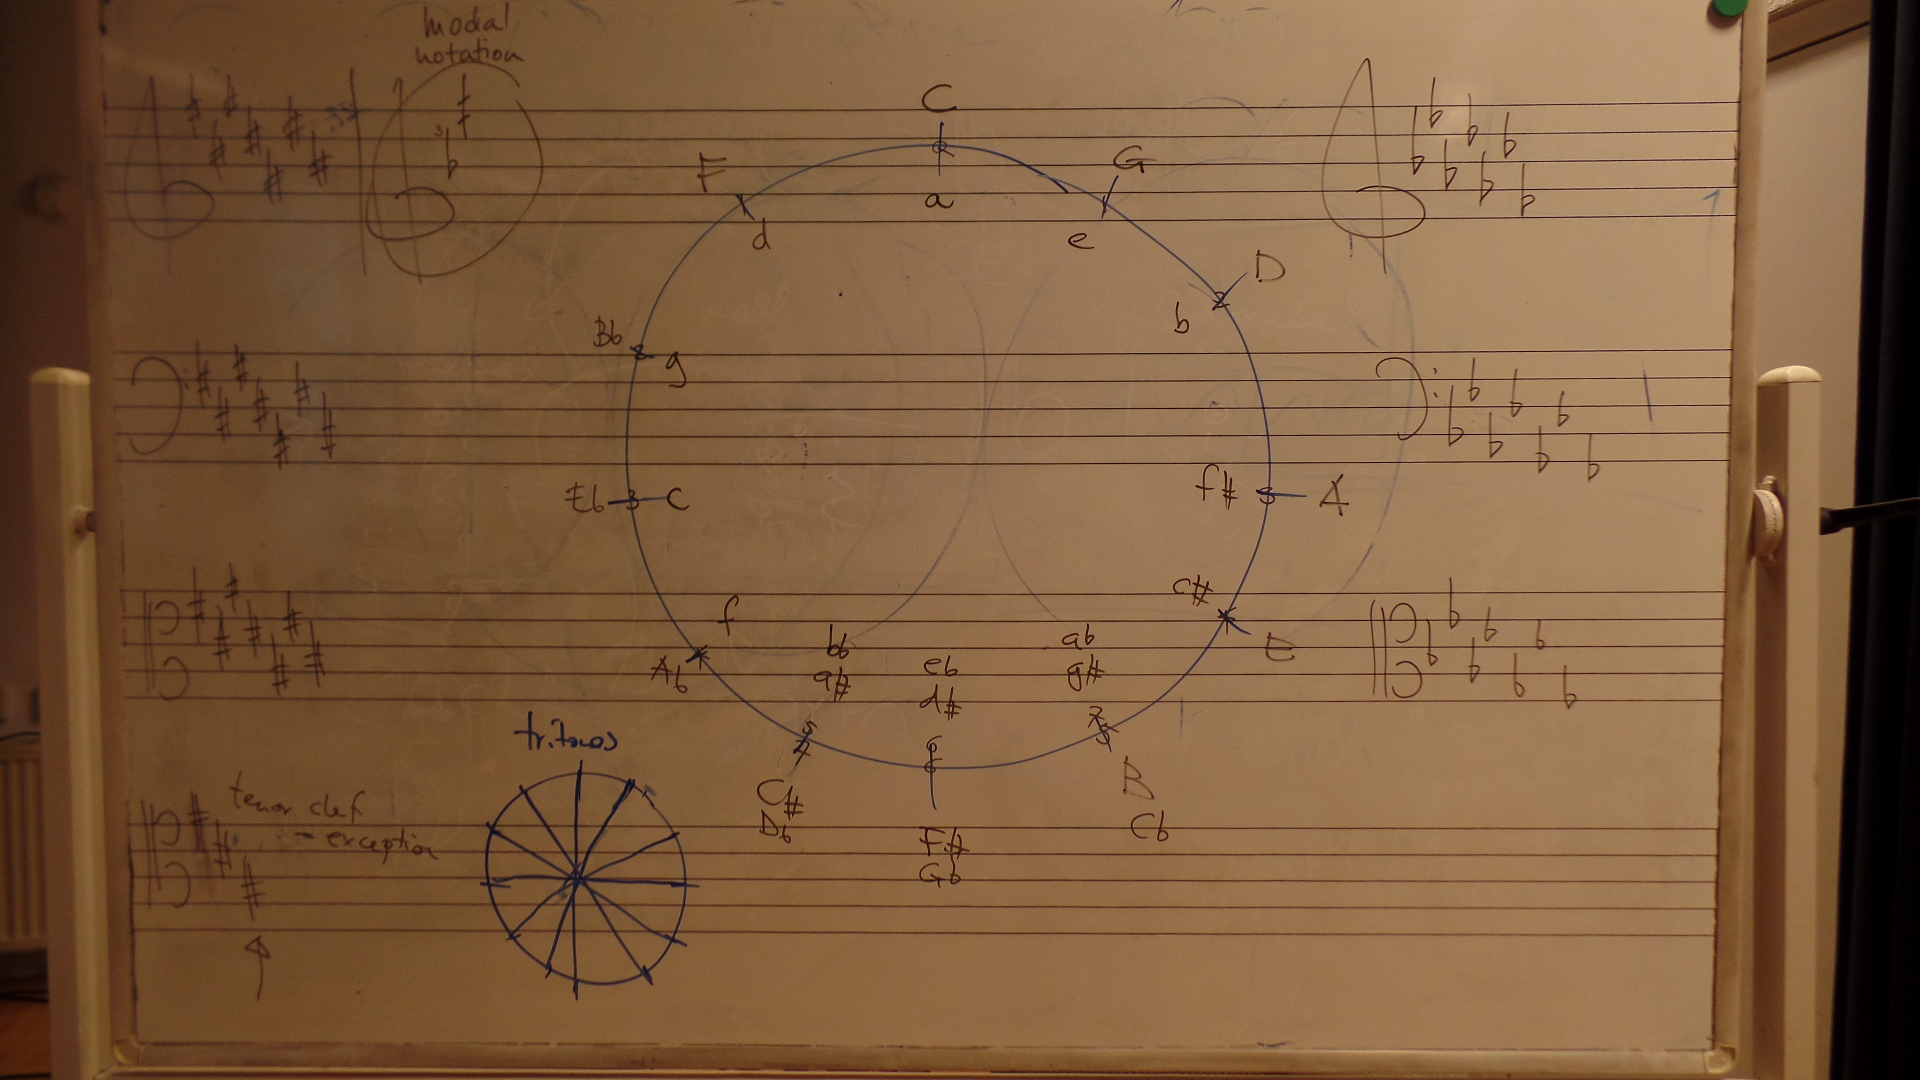 modal
notation
C
F
G
a
d
e
D
b
Bb
g
Eb
C
f#
A
c#
E
f
Ab
bb
a#
eb
d#
ab
g#
tritonos
C#
Db
F#
Gb
B
Cb
tenor clef
- exception